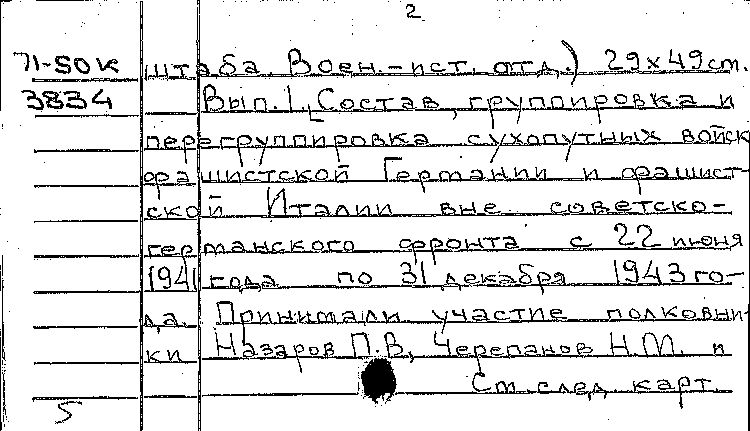 2
71-50к штаба. Воен.-ист. отд.) 29х49см.
3834 Вып. 1, Состав, группировка и
перегруппировка сухопутных войск
фашистской Германии и фашист-
ской Италии вне советско-
германского фронта с 22 июня
1941 года по 31 декабря 1943 го-
да. Принимали участие полковни-
ки Назаров П.В., Черепанов Н.М. и
См. след. карт.
5